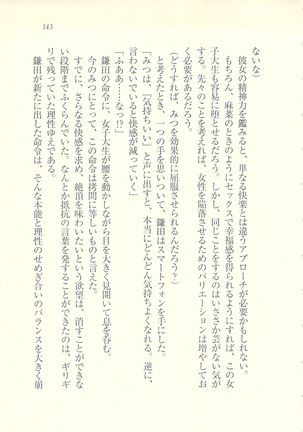 143
ないな)
彼女の精神力を鑑みると、単なる快楽とは違うアプローチが必要かもしれない。
もちろん、麻菜のときのようにセックスで幸福感を得られるようにすれば、この女
子大生も容易に堕とせるだろう。しかし、同じことをするのはいささか芸がない気が
する。先々のことを考えれば、女性を陥落させるためのバリエーションは増やしてお
く必要があるだろう。
(どうすれば、みつを効果的に屈服させられるんだろう?)
と考えたとき、一つの手を思いついて、鎌田はスマートフォンを手にした。
「みつは、『気持ちいい』と声に出すと、本当にどんどん気持ちよくなれる。逆に、
言わないでいると快感が減っていく」
「ふああ……なっ!?」
鎌田の命令に、女子大生が腰を動かしながら目を大きく見開いて息を呑む。
今のみつにとって、この命令は拷問に等しいものと言えた。
すでに、さらなる快感を求め、絶頂を味わいたいという欲望は、消すことができな
い段階までふくらんでいた。なんとか抵抗の言葉を発することができたのは、ギリギ
リで残っていた理性ゆえである。
鎌田が新たに出した命令は、そんな本能と理性のせめぎ合いのバランスを大きく崩